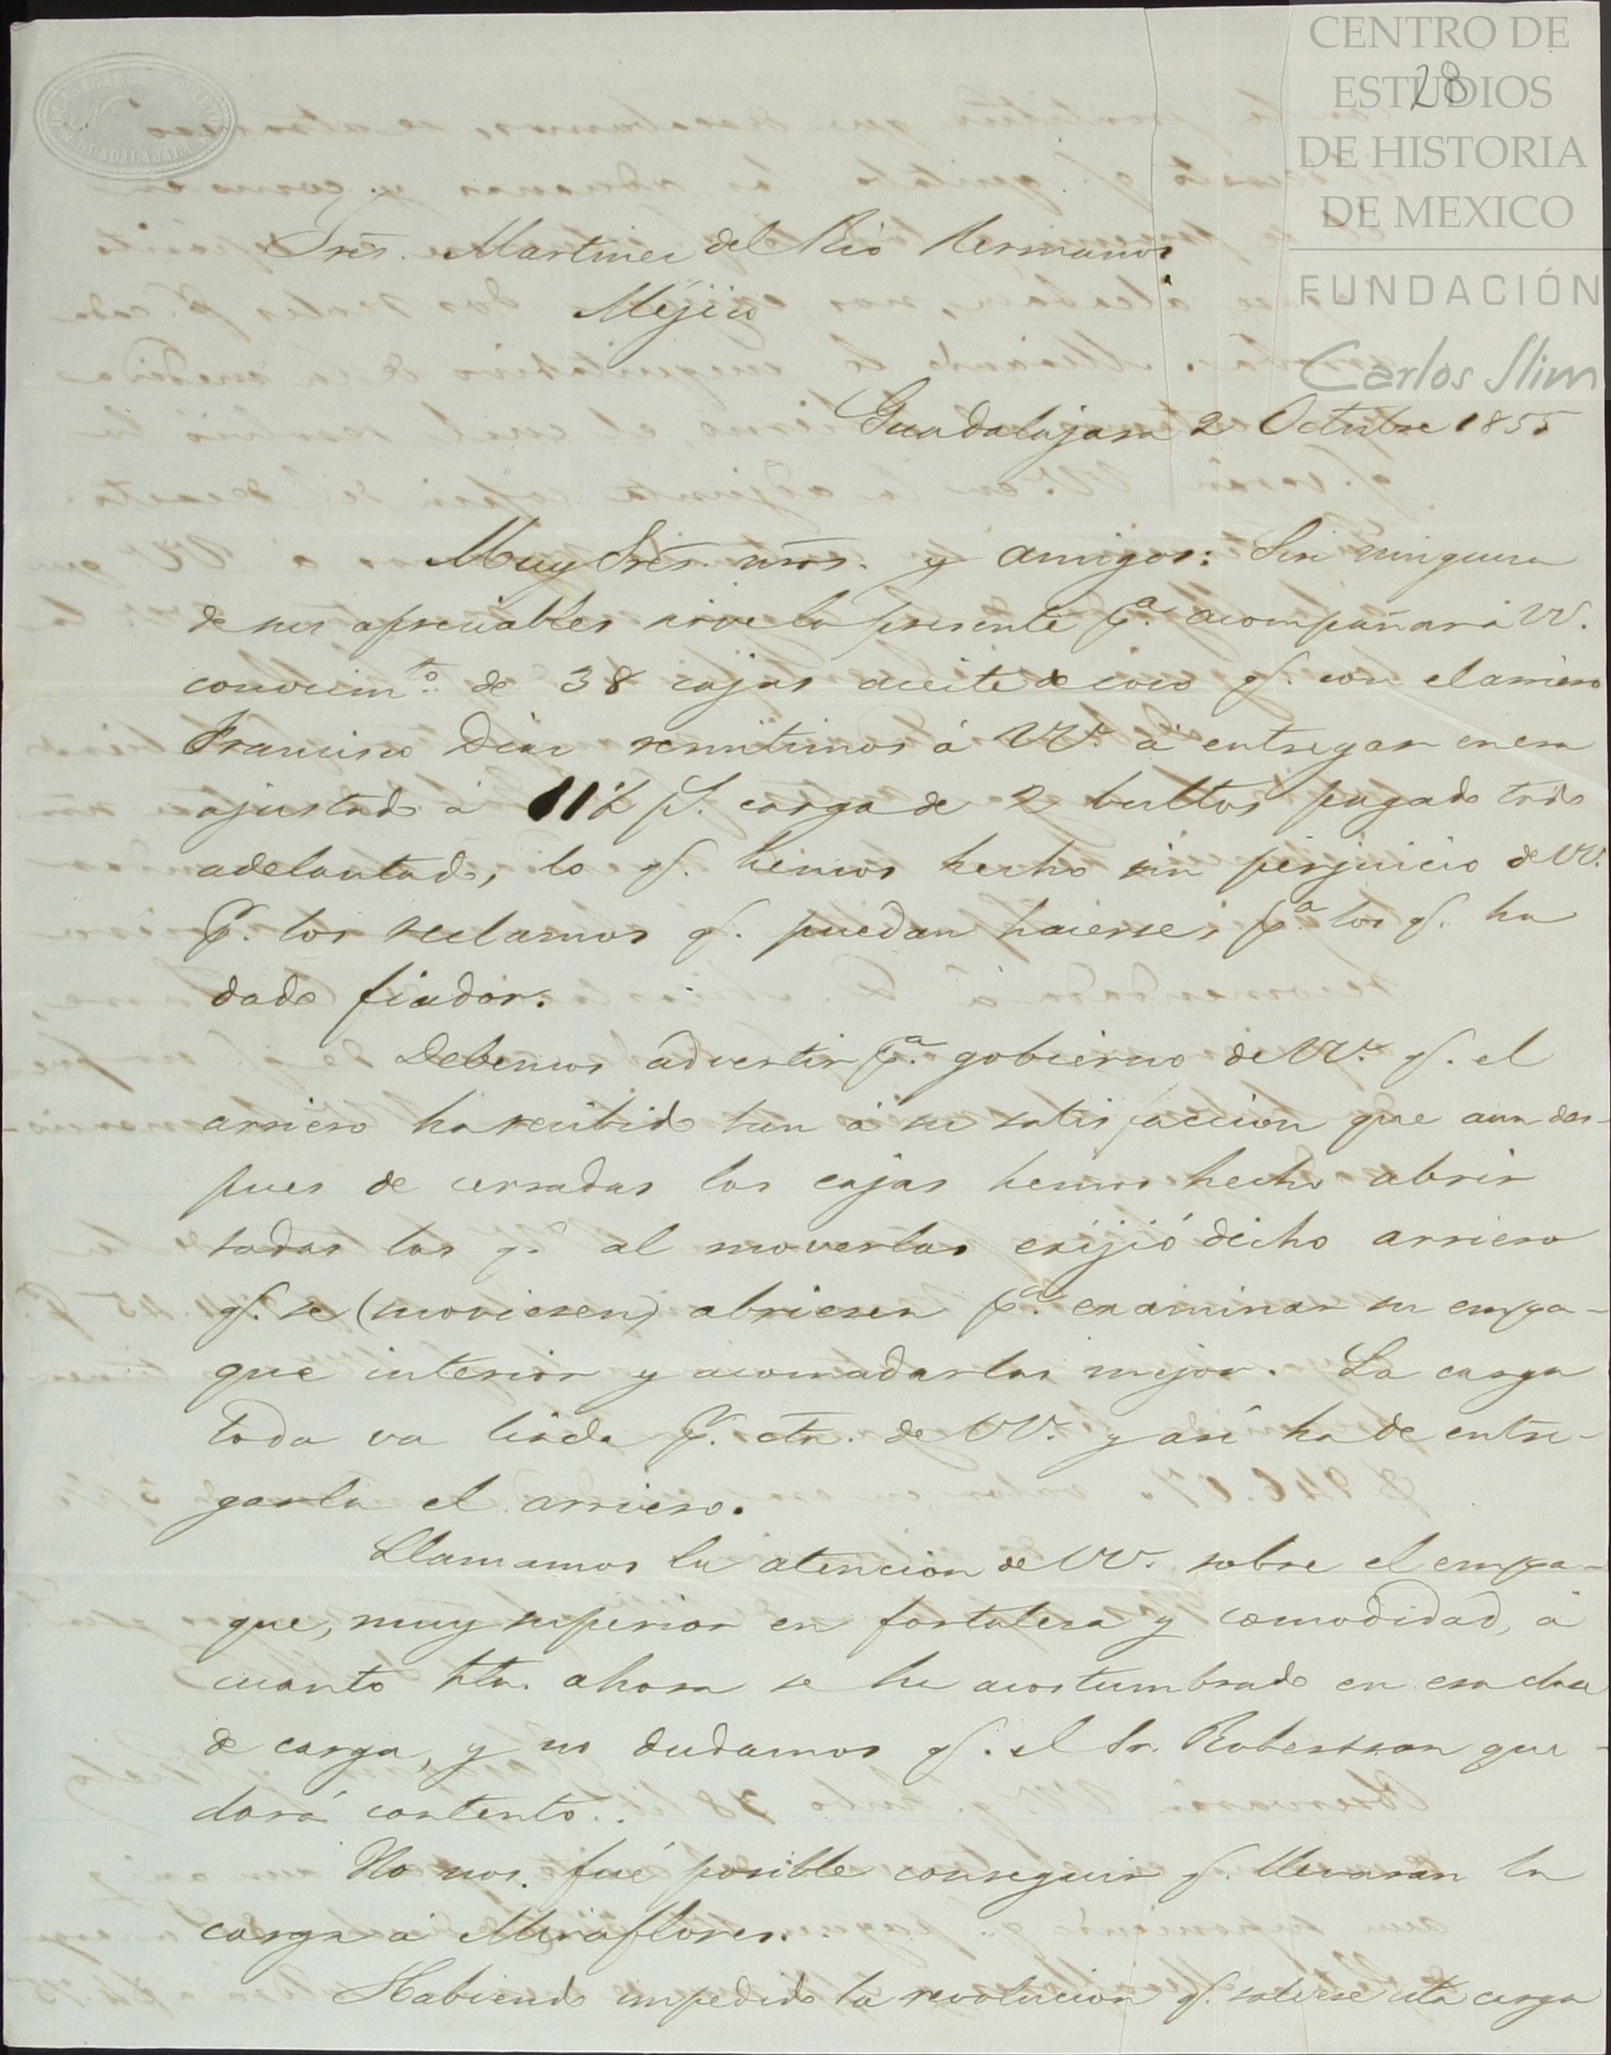 CENTRO DE
ESTUDIOS
DE HISTORIA
DE MEXICO
FUNDACIÓN
Carlos Slim
28
GUADALAJARA
Sres. Martinez del Rio Hermanos
Méjico
Guadalajara 2 Octubre 1855
Muy Sres. nros. y amigos: Sin ninguna
de sus apreciables sirve la presente pa. acompañar á VV.
conocimto. de 38 cajas aceite de coco q. con el arriero
Francisco Diaz remitimos á VV. á entregar en esa
ajustado á 11½ p. carga de 2 bultos pagado todo
adelantado, lo q. hemos hecho sin perjuicio de VV.
p. los reclamos q. puedan hacerse, pa. los q. ha
dado fiador.
Debemos advertir pa. gobierno de VV. q. el
arriero ha recibido tan á su satisfaccion que aun des-
pues de cerradas las cajas hemos hecho abrir
todas las q. al moverlas exijió dicho arriero
q. se (moviesen) abriesen pa. examinar su empa-
que interior y acomodarlas mejor. La carga
toda va linda p. cta. de VV. y asi ha de entre-
garla el arriero.
Llamamos la atencion de VV. sobre el empa-
que, muy superior en fortaleza y comodidad, á
cuanto hta. ahora se ha acostumbrado en esa clase
de carga, y no dudamos q. el Sr. Robertson que-
dará contento.
No nos fué posible conseguir q. llevaran la
carga á Miraflores.
Habiendo impedido la revolucion q. saliese esta carga